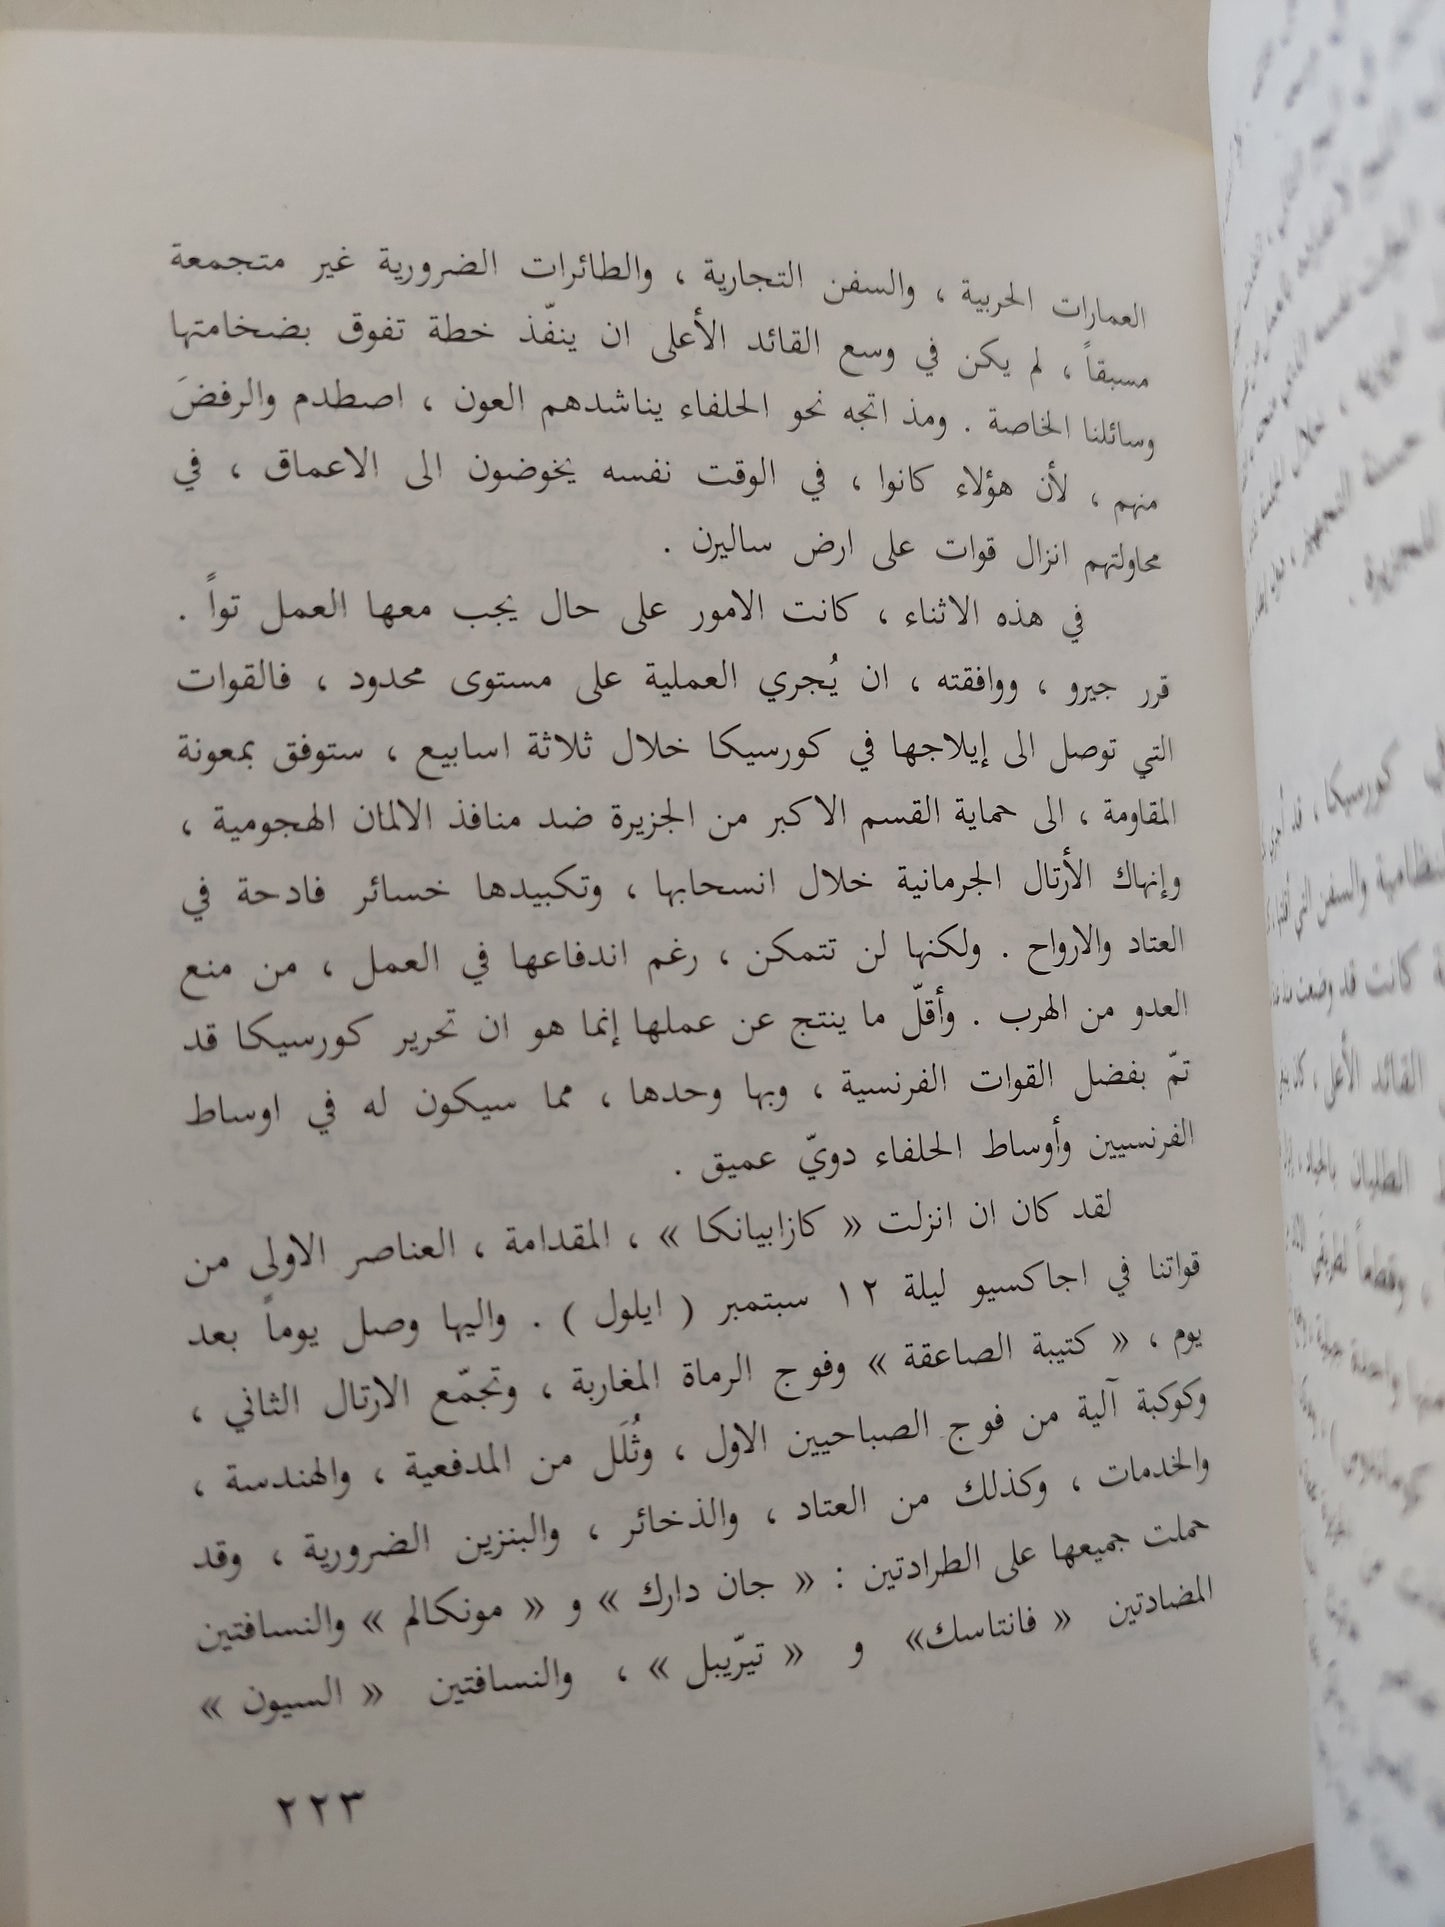 العمارات الحربية ، والسفن التجارية ، والطائرات الضرورية غير متجمعة
مسبقاً ، لم يكن في وسع القائد الأعلى ان ينفّذ خطة تفوق بضخامتها
وسائلنا الخاصة . ومذ اتجه نحو الحلفاء يناشدهم العون ، اصطدم والرفضَ
منهم ، لأن هؤلاء كانوا ، في الوقت نفسه يخوضون الى الاعماق ، في
محاولتهم انزال قوات على ارض ساليرن .
في هذه الاثناء ، كانت الامور على حال يجب معها العمل تواً .
قرر جيرو ، ووافقته ، ان يُجري العملية على مستوى محدود ، فالقوات
التي توصل الى إيلاجها في كورسيكا خلال ثلاثة اسابيع ، ستوفق بمعونة
المقاومة ، الى حماية القسم الاكبر من الجزيرة ضد منافذ الالمان الهجومية ،
وإنهاك الأرتال الجرمانية خلال انسحابها ، وتكبيدها خسائر فادحة في
العتاد والارواح . ولكنها لن تتمكن ، رغم اندفاعها في العمل ، من منع
العدو من الهرب . وأقلّ ما ينتج عن عملها إنما هو ان تحرير كورسيكا قد
تمّ بفضل القوات الفرنسية ، وبها وحدها ، مما سيكون له في اوساط
الفرنسيين وأوساط الحلفاء دويّ عميق .
لقد كان ان انزلت « كازابيانكا » ، المقدامة ، العناصر الاولى من
قواتنا في اجاكسيو ليلة ١٢ سبتمبر ( ايلول ) . واليها وصل يوماً بعد
يوم ، « كتيبة الصاعقة » وفوج الرماة المغاربة ، وتجمّع الارتال الثاني ،
وكوكبة آلية من فوج الصباحيين الاول ، وثُلَل من المدفعية ، والهندسة ،
والخدمات ، وكذلك من العتاد ، والذخائر ، والبنزين الضرورية ، وقد
حملت جميعها على الطرادتين : « جان دارك » و « مونكالم » والنسافتين
المضادتين « فانتاسك» و « تيرّيبل » ، والنسافتين « السيون »
٢٢٣